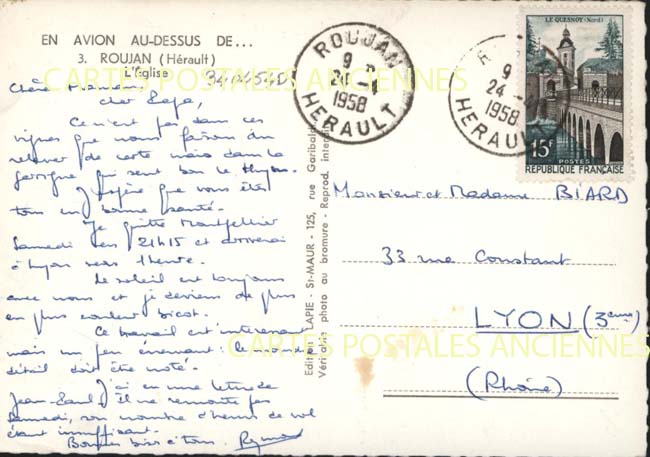 EN AVION AU-DESSUS DE...
3. ROUJAN (Hérault)
L'Église
Chère Maman,
cher Papa,
Ce n'est pas dans ces
vignes que nous faisons du
relever de carte mais dans la
garrigue qui sent bon le thym.
J'espère que vous êtes
tous en bonne santé.
Je quitte Montpellier
Samedi vers 21H15 et arriverai
à Lyon vers 1 heure.
Le soleil est toujours
avec nous et je deviens de plus
en plus couleur bicot.
Ce travail est intéressant
mais un peu énervant : le moindre
détail doit être noté.
J'ai eu une lettre de
Jean-Paul, il ne remonte pas
Samedi, son nombre d'heures de vol
étant insuffisant.
Bonnes bises à tous.
CARTES POSTALES ANCIENNES
CARTES POSTALES ANCIENNES
Editions LAPIE - St-MAUR - 125, rue Garibaldi
Véritable photo au bromure - Reprod. interdite
ROUJAN
9
24
1958
HERAULT
9
24
1958
HERAULT
LE QUESNOY (Nord)
15F
POSTES
REPUBLIQUE FRANÇAISE
Monsieur et Madame BIARD
33 rue Constant
LYON (3ème)
(Rhône)